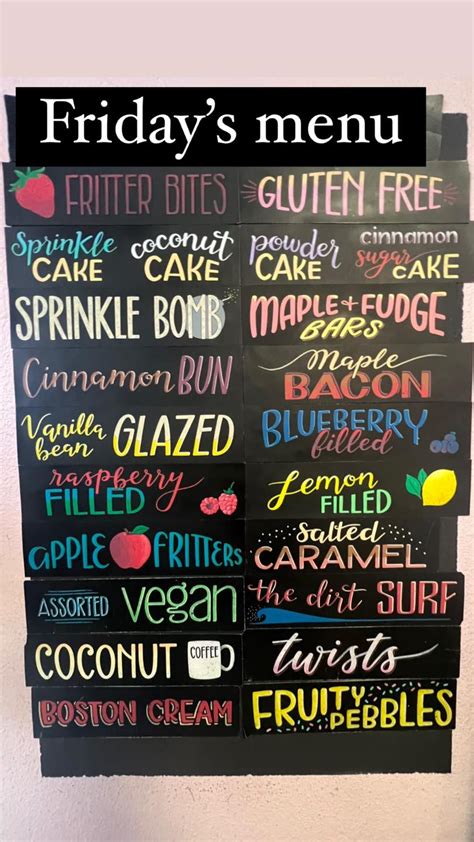 Friday's menu
FRITTER BITES
GLUTEN FREE
Sprinkle CAKE
coconut CAKE
powder CAKE
cinnamon sugar CAKE
SPRINKLE BOMB
MAPLE + FUDGE BARS
Cinnamon BUN
Maple BACON
Vanilla bean GLAZED
BLUEBERRY filled
raspberry FILLED
Lemon FILLED
APPLE FRITTERS
Salted CARAMEL
ASSORTED vegan
the dirt SURF
COCONUT COFFEE
twists
BOSTON CREAM
FRUITY PEBBLES